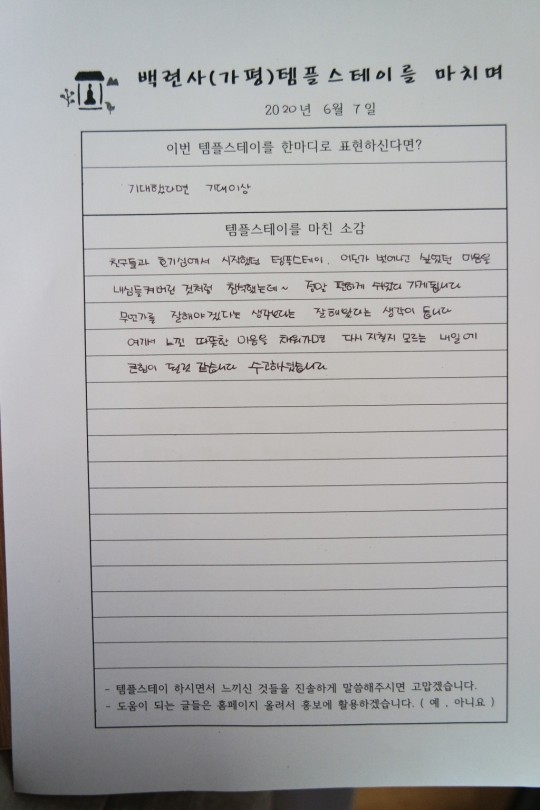 백련사(가평)템플스테이를 마치며
2020년 6월 7일
이번 템플스테이를 한마디로 표현하신다면?
기대했다면 기대이상
템플스테이를 마친 소감
친구들과 호기심에서 시작했던 템플스테이. 어딘가 벗어나고 싶었던 마음을
내심들켜버린 것처럼 참석했는데~ 정말 편하게 쉬었다 가게됩니다
무언가를 잘해야겠다는 생각보다는 잘해왔다는 생각이 듭니다
여기에 느낀 따뜻한 마음을 채워가면 다시 지칠지 모르는 내일에
큰힘이 될것 같습니다 수고하셨습니다
- 템플스테이 하시면서 느끼신 것들을 진솔하게 말씀해주시면 고맙겠습니다.
- 도움이 되는 글들은 홈페이지 올려서 홍보에 활용하겠습니다. ( 예 . 아니요 )